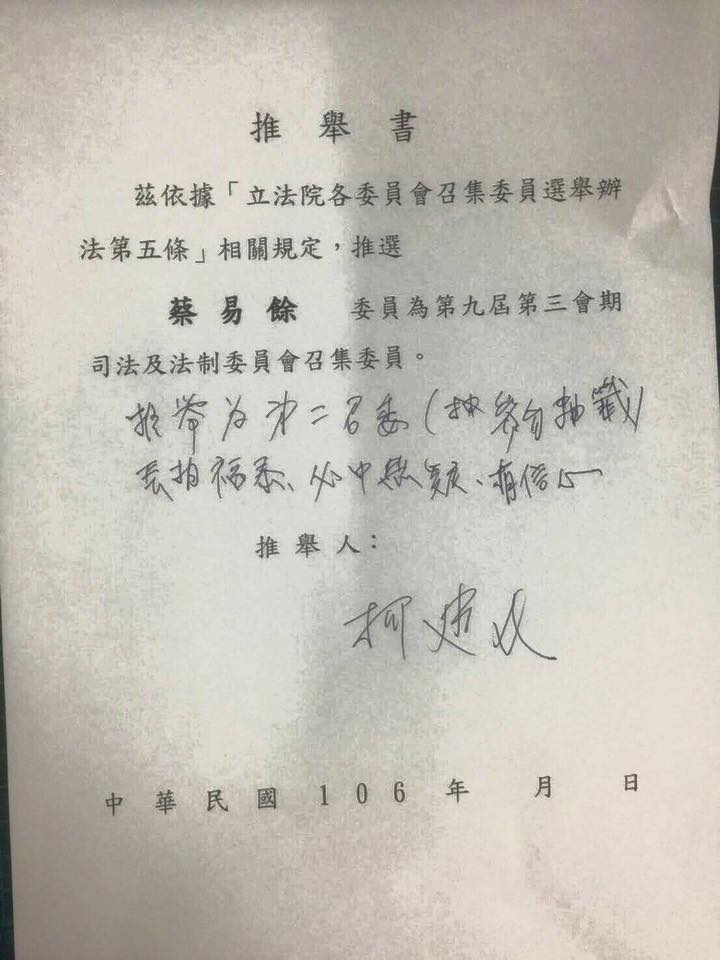 推舉書
茲依據「立法院各委員會召集委員選舉辦
法第五條」相關規定，推選
蔡易餘 委員為第九屆第三會期
司法及法制委員會召集委員。
推舉為第二召委(抽籤)
必中無疑、有信心
推舉人：
柯建
中華民國106年 月 日